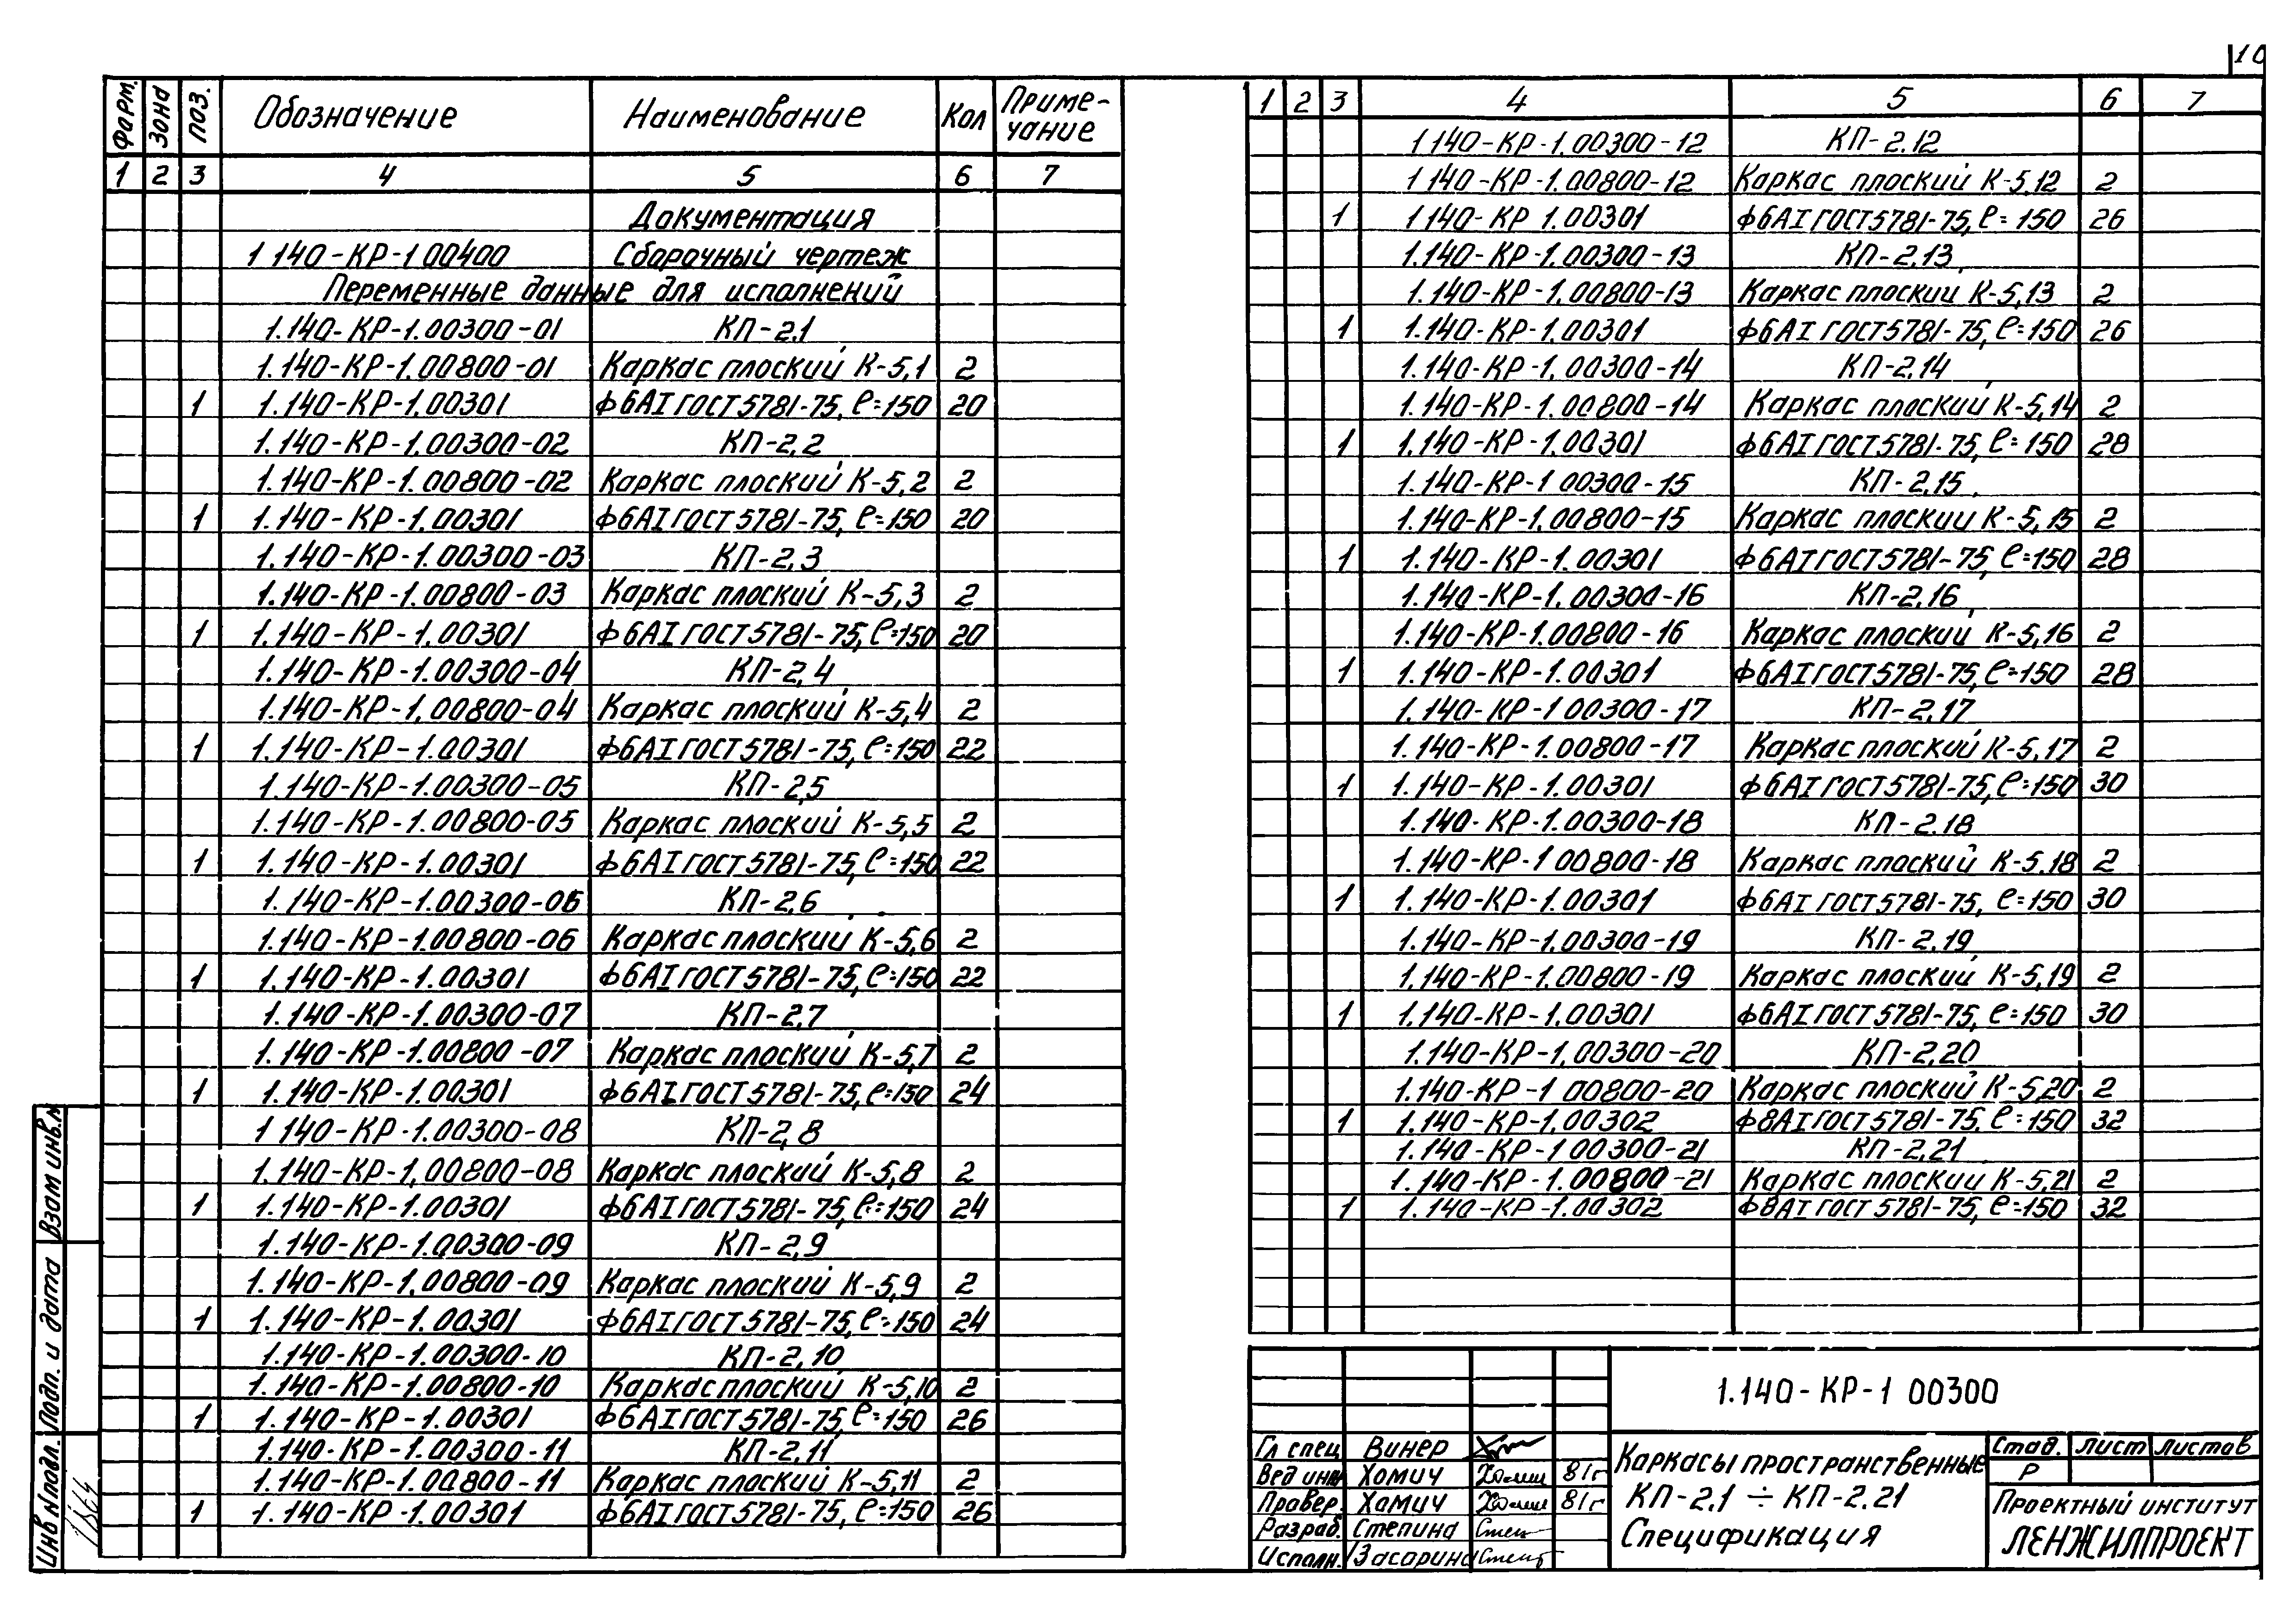 10
Форм. Зона Поз. Обозначение Наименование Кол Приме-
чание
1 2 3 4 5 6 7
Документация
1 140-КР-1.00400 Сборочный чертеж
Переменные данные для исполнений
1.140-КР-1.00300-01 КП-2,1
1.140-КР-1.00800-01 Каркас плоский К-5,1 2
1 1.140-КР-1.00301 ф6АI ГОСТ 5781-75, ℓ=150 20
1.140-КР-1.00300-02 КП-2,2
1.140-КР-1.00800-02 Каркас плоский К-5,2 2
1 1.140-КР-1.00301 ф6АI ГОСТ 5781-75, ℓ=150 20
1.140-КР-1.00300-03 КП-2,3
1.140-КР-1.00800-03 Каркас плоский К-5,3 2
1 1.140-КР-1.00301 ф6АI ГОСТ 5781-75, ℓ=150 20
1.140-КР-1.00300-04 КП-2,4
1.140-КР-1.00800-04 Каркас плоский К-5,4 2
1 1.140-КР-1.00301 ф6АI ГОСТ 5781-75, ℓ=150 22
1.140-КР-1.00300-05 КП-2,5
1.140-КР-1.00800-05 Каркас плоский К-5,5 2
1 1.140-КР-1.00301 ф6АI ГОСТ 5781-75, ℓ=150 22
1.140-КР-1.00300-06 КП-2,6
1.140-КР-1.00800-06 Каркас плоский К-5,6 2
1 1.140-КР-1.00301 ф6АI ГОСТ 5781-75, ℓ=150 22
1.140-КР-1.00300-07 КП-2,7
1.140-КР-1.00800-07 Каркас плоский К-5,7 2
1 1.140-КР-1.00301 ф6АI ГОСТ 5781-75, ℓ=150 24
1 140-КР-1.00300-08 КП-2,8
1.140-КР-1,00800-08 Каркас плоский К-5,8 2
1 1.140-КР-1.00301 ф6АI ГОСТ 5781-75, ℓ=150 24
1.140-КР-1.00300-09 КП-2,9
1.140-КР-1.00800-09 Каркас плоский К-5,9 2
1 1.140-КР-1.00301 ф6АI ГОСТ 5781-75, ℓ=150 24
1.140-КР-1.00300-10 КП-2,10
1.140-КР-1.00800-10 Каркас плоский К-5,10 2
1 1.140-КР-1.00301 ф6АI ГОСТ 5781-75, ℓ=150 26
1.140-КР-1.00300-11 КП-2,11
1.140-КР-1.00800-11 Каркас плоский К-5,11 2
1 1.140-КР-1.00301 ф6АI ГОСТ 5781-75, ℓ=150 26
1 2 3 4 5 6 7
1 140-КР-1.00300-12 КП-2.12
1 140-КР-1.00800-12 Каркас плоский К-5,12 2
1 1.140-КР 1.00301 ф6АI ГОСТ 5781-75, ℓ=150 26
1.140-КР-1.00300-13 КП-2,13
1.140-КР-1.00800-13 Каркас плоский К-5,13 2
1 1.140-КР-1.00301 ф6АI ГОСТ 5781-75, ℓ=150 26
1.140-КР-1.00300-14 КП-2,14
1.140-КР-1.00800-14 Каркас плоский К-5,14 2
1 1.140-КР-1.00301 ф6АI ГОСТ 5781-75, ℓ=150 28
1.140-КР-1 00300-15 КП-2,15
1.140-КР-1.00800-15 Каркас плоский К-5,15 2
1 1.140-КР-1.00301 ф6АI ГОСТ 5781-75, ℓ=150 28
1.140-КР-1.00300-16 КП-2,16
1.140-КР-1.00800-16 Каркас плоский К-5,16 2
1 1.140-КР-1.00301 ф6АI ГОСТ 5781-75, ℓ=150 28
1.140-КР-1 00300-17 КП-2,17
1.140-КР-1.00800-17 Каркас плоский К-5,17 2
1 1.140-КР-1.00301 ф6АI ГОСТ 5781-75, ℓ=150 30
1.140-КР-1.00300-18 КП-2.18
1.140-КР-1 00800-18 Каркас плоский К-5.18 2
1 1.140-КР-1.00301 ф6АI ГОСТ 5781-75, ℓ=150 30
1.140-КР-1.00300-19 КП-2.19
1.140-КР-1.00800-19 Каркас плоский К-5,19 2
1 1.140-КР-1.00301 ф6АI ГОСТ 5781-75, ℓ=150 30
1.140-КР-1.00300-20 КП-2,20
1.140-КР-1 00800-20 Каркас плоский К-5,20 2
1 1.140-КР-1.00302 ф8АI ГОСТ 5781-75, ℓ=150 32
1.140-КР-1 00300-21 КП-2,21
1.140-КР-1.00800-21 Каркас плоский К-5,21 2
1 1.140-КР-1.00302 ф8АI ГОСТ 5781-75, ℓ=150 32
1.140-КР-1 00300
Гл спец Винер
Вед инж Хомич 81г
Провер. Хомич 81г
Разраб. Степина
Исполн. Засорина
Каркасы пространственные
КП-2,1 ÷ КП-2,21
Спецификация
Стад. Лист Листов
Р
Проектный институт
ЛЕНЖИЛПРОЕКТ
Взам инв.N
Подп. и дата
Инв N подл.